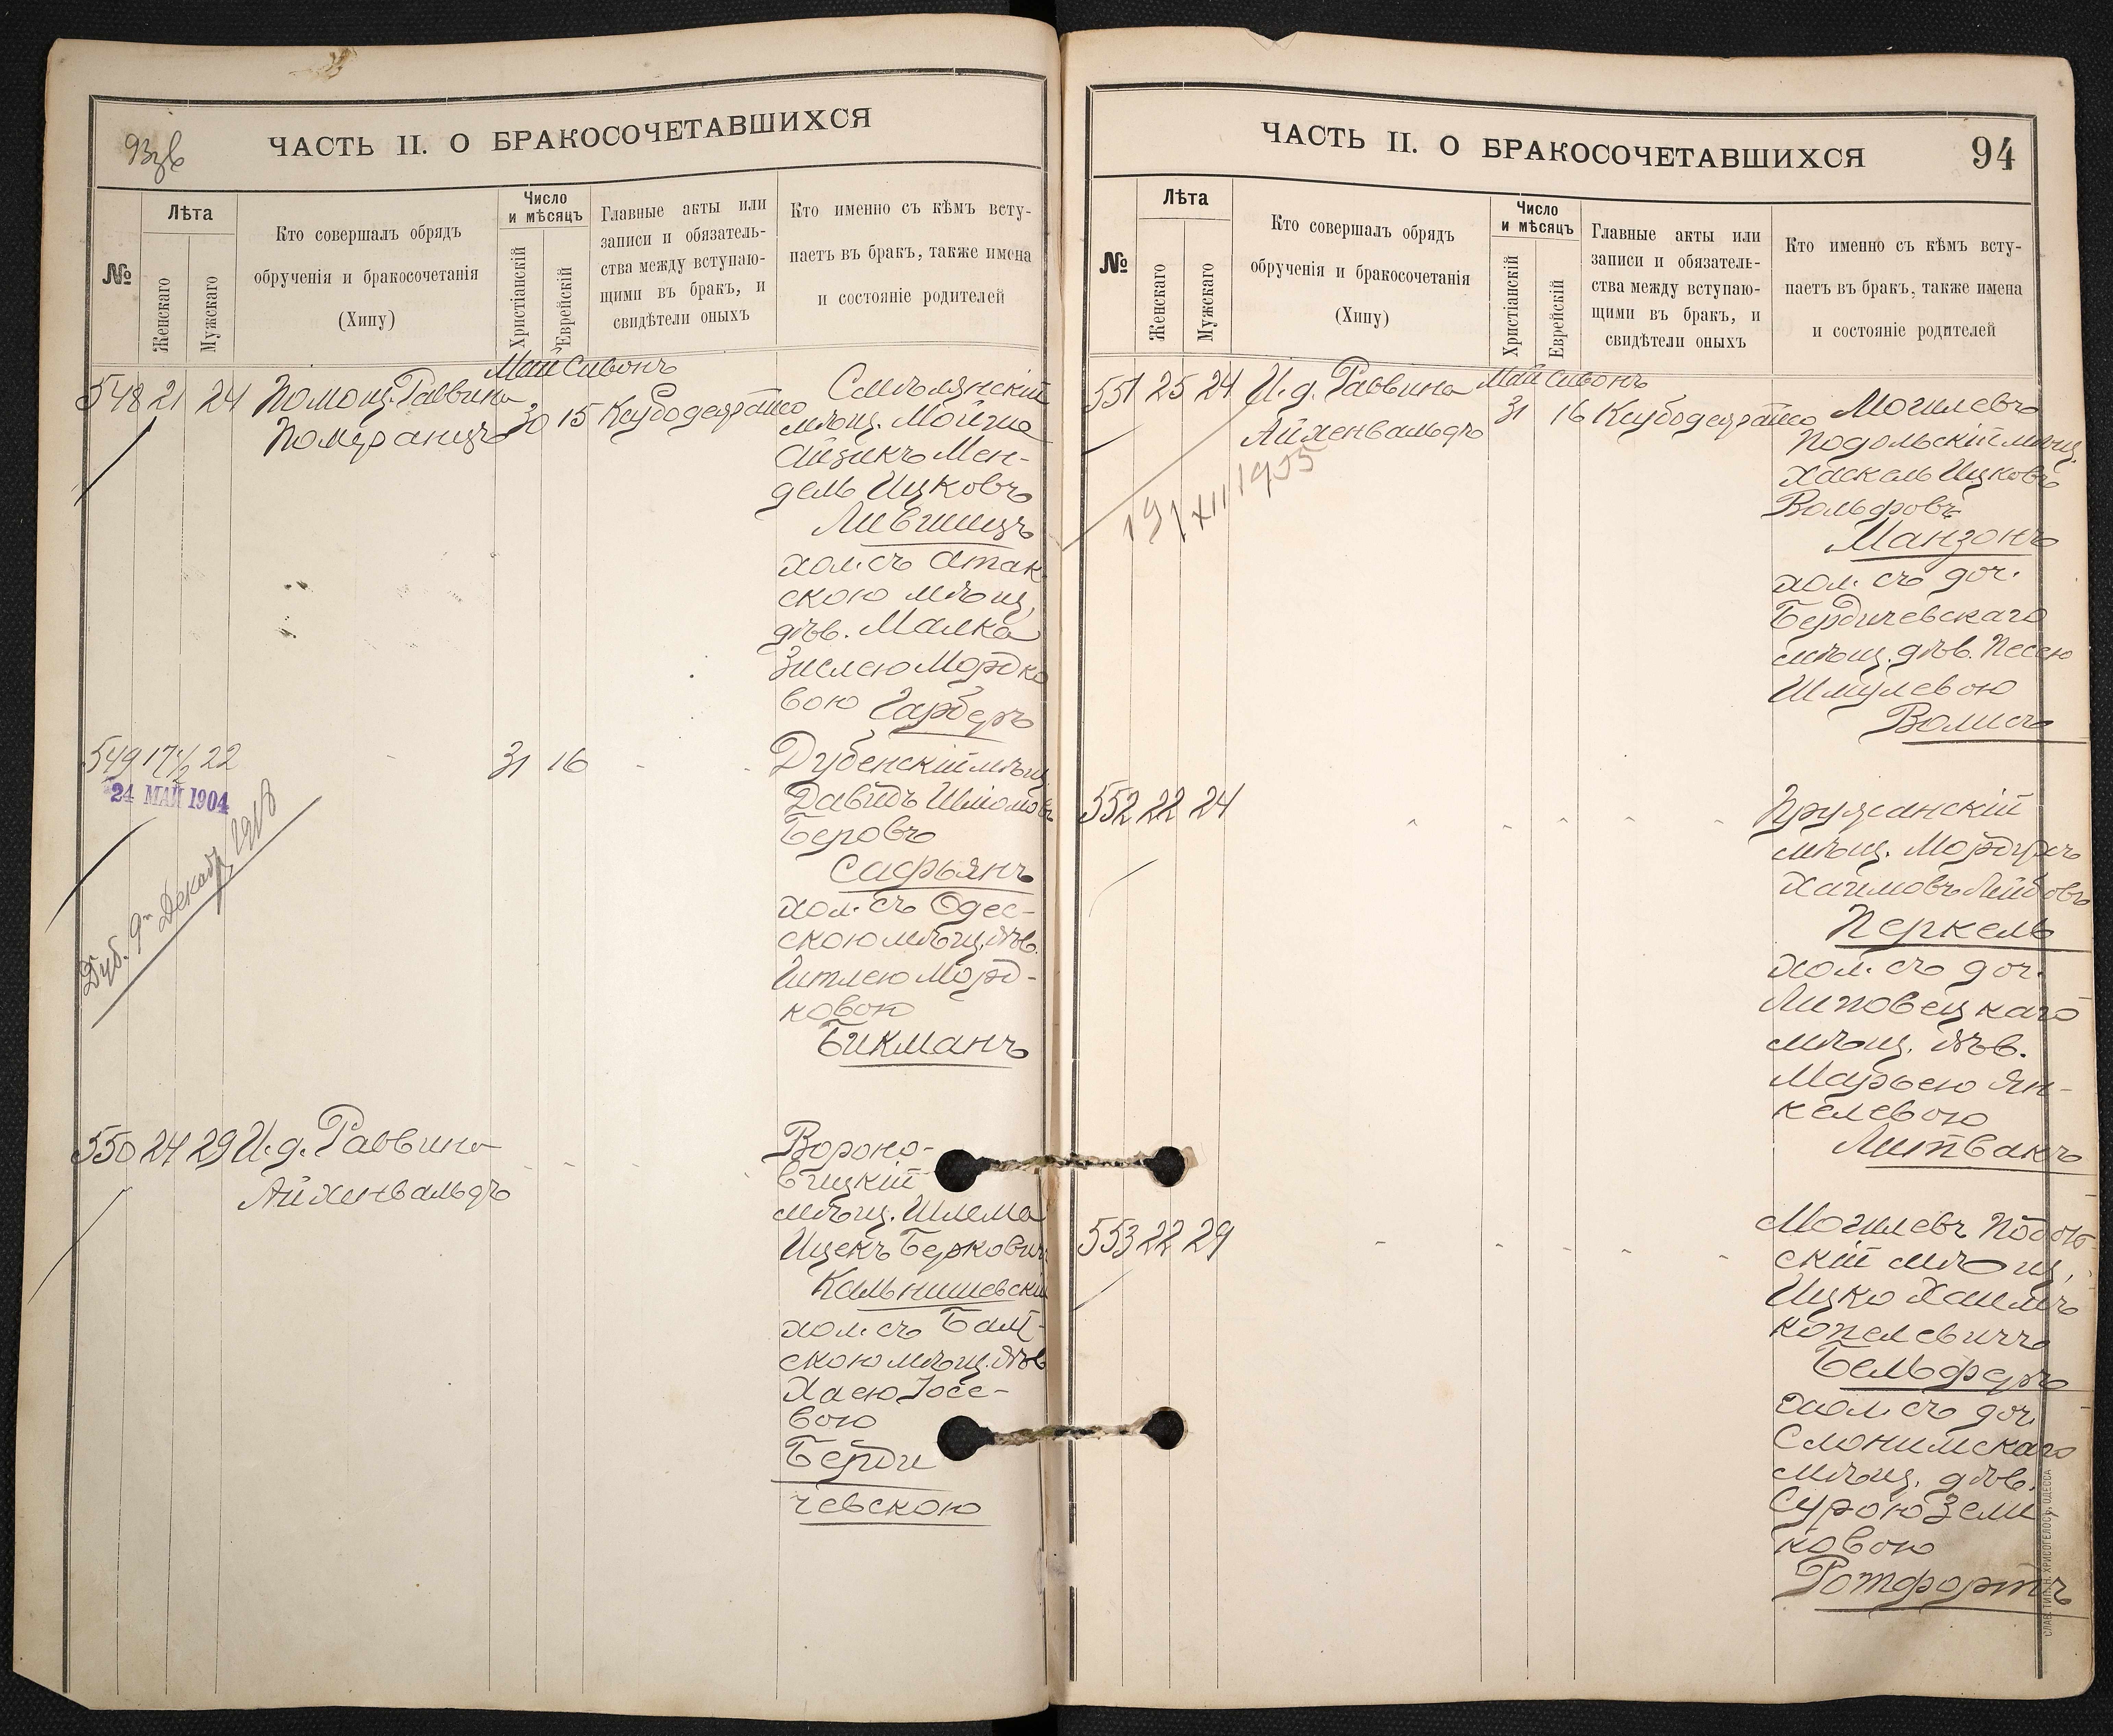 93 зв
ЧАСТЬ II. О БРАКОСОЧЕТАВШИХСЯ
№
Лѣта
Женскаго
Мужскаго
Кто совершалъ обрядъ
обрученія и бракосочетанія
(Хипу)
Число
и мѣсяцъ
Христіанскій
Еврейскій
Главные акты или
записи и обязатель-
ства между вступаю-
щими въ бракъ, и
свидѣтели оныхъ
Кто именно съ кѣмъ всту-
паетъ въ бракъ, также имена
и состояніе родителей
Май Сивонъ
548 21 24 Помощ. Раввина
Померанцъ
30 15
мѣщ. Мойше
Айзикъ Мен-
дель Ицковъ
Лившицъ
хол. съ Атак-
скою мѣщ.
дѣв. Малка
Зислею Мордко
вою Гарберъ
549 17 1/2 22 31 16
24 МАЙ 1904
Дуб. 9го Декабр 1918
Дубенскій мѣщ.
Давидъ Шломовъ
Беровъ
Сафьянъ
хол. съ Одес-
скою мѣщ. дѣв.
ГитлеюМорд-
ковою
Бикманъ
550 24 29 И. д. Раввина
Айхенвальдъ
Вороно-
вицкій
мѣщ. Шлема
Ицекъ Берковичъ
Кальнишевскій
хол. съ Балт-
скою мѣщ. дѣв
Хаею Іосе-
вою
Берди
чевскою
ЧАСТЬ II. О БРАКОСОЧЕТАВШИХСЯ
94
№
Лѣта
Женскаго
Мужскаго
Кто совершалъ обрядъ
обрученія и бракосочетанія
(Хипу)
Число
и мѣсяцъ
Христіанскій
Еврейскій
Главные акты или
записи и обязатель-
ства между вступаю-
щими въ бракъ, и
свидѣтели оныхъ
Кто именно съ кѣмъ всту-
паетъ въ бракъ, также имена
и состояніе родителей
Май Сивонъ
551 25 24 И. д. Раввина
Айхенвальдъ
31 16
19/XII 1935
Могилевъ
Подольскій мѣщ.
Хаскель Ицковъ
Вольфовъ
Манзонъ
хол. съ доч.
Бердичевскаго
мѣщ. дѣв. Песею
Шмулевою
Волисъ
552 22 24
Пружанскій
мѣщ. Мордухъ
Хаимовъ Лейбовъ
Перкель
хол. съ доч.
Липовецкаго
мѣщ. дѣв.
Марьею Ян-
келевою
Литвакъ
553 22 29
Могилевъ Подоль
скій мѣщ.
Ицко Хаимъ
Копелевичъ
Бельферъ
хол. съ доч.
Слонимскаго
мѣщ. дѣв.
Сурою Зели
ковою
Ротфортъ
СЛАВ. ТИП. Н. ХРИСОГЕЛОСЪ, ОДЕССА